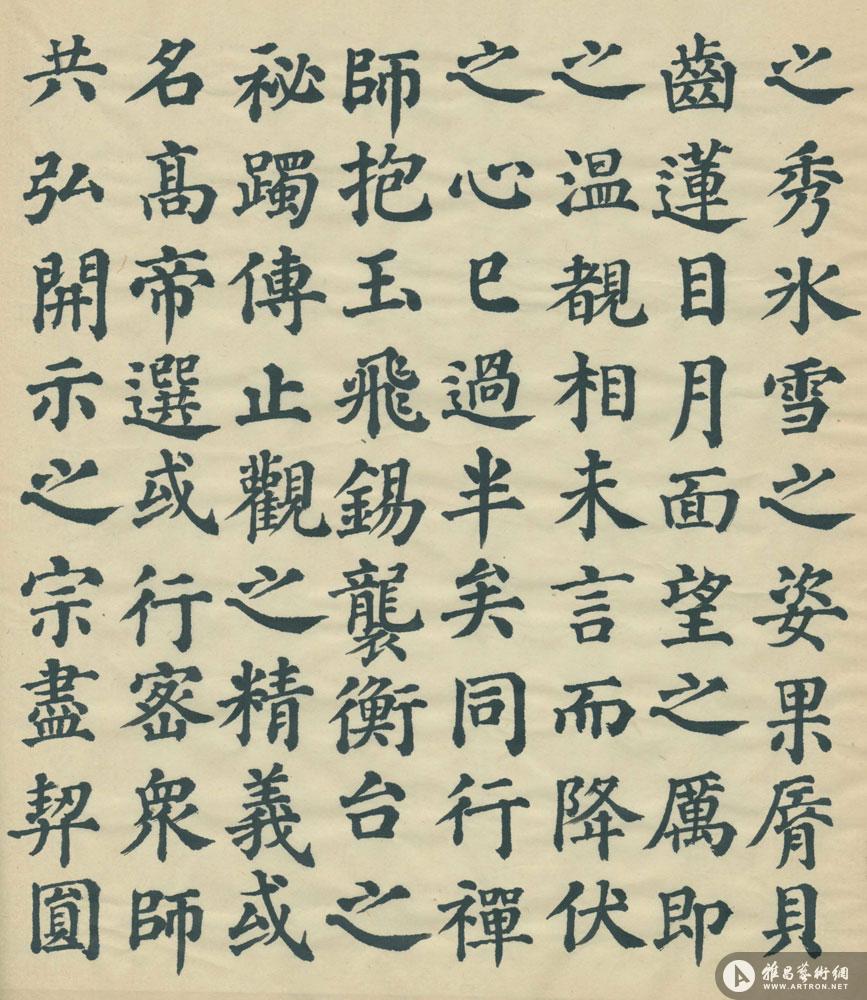 之秀氷雪之姿果脣貝
齒蓮目月面望之厲即
之温覩相未言而降伏
之心已過半矣同行禪
師抱玉飛錫襲衡台之
秘躅傳止觀之精義或
名高帝選或行密眾師
共弘開示之宗盡契圓
雅昌藝術網
WWW.ARTRON.NET